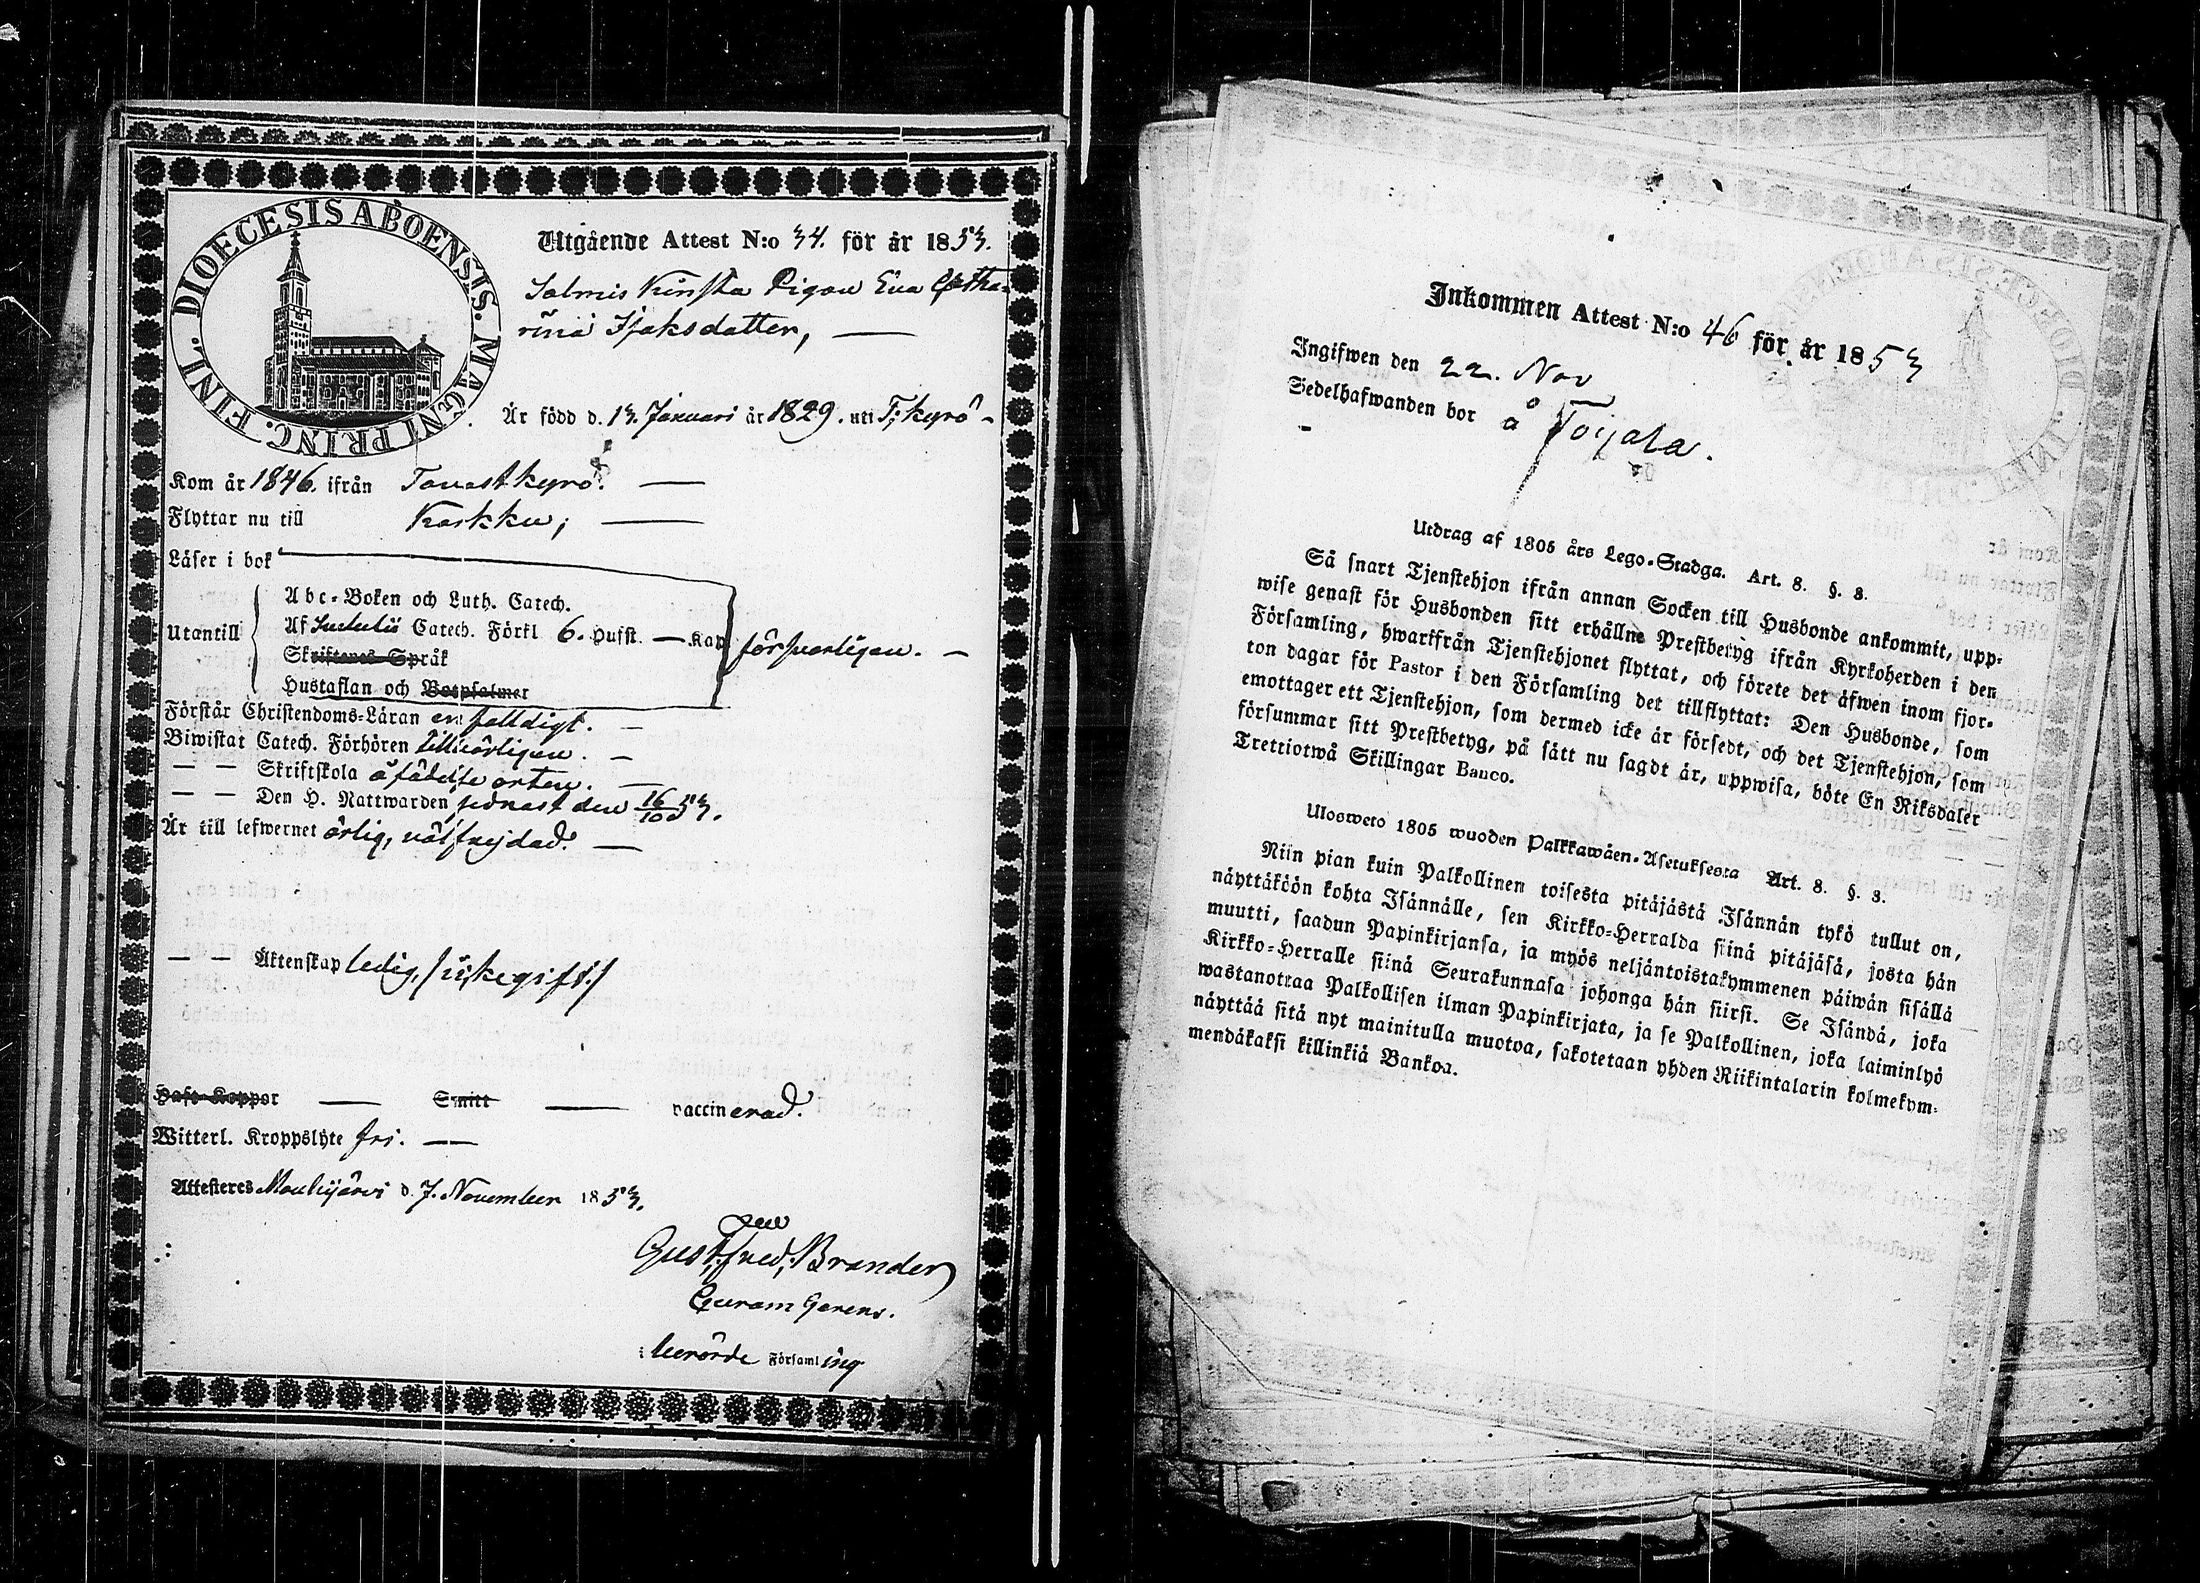 DIOECESIS ABOENSIS. MAGNI PRINC. FINL.
Utgående Attest N:o 34. för år 1853.
Salmis Kinsta Pigan Eva Catha-
rina Isaksdotter, —
Är född d. 13. Januari år 1829. uti T:kyrö -
Kom år 1846. ifrån Tavastkyrö. —
Flyttar nu till Karkku; —
Läser i bok
Utantill
Abc-Boken och Luth. Catech.
Af Catech. Förkl 6. Hufst. — Kap
försvarligen. —
Skriftenes Språk
Hustaflan och Botpsalmer
Förstår Christendoms-Läran enfaldigt. —
Biwistat Catech. Förhören tillbörligen. —
— — Skriftskola å födelse orten. —
— — Den H. Nattwarden senast den 16/10 53.
Är till lefwernet ärlig, välfrejdad. —
— — Äktenskap ledig, /:ickegift:/
Haft Koppor — Smitt — vaccinerad.
Witterl. Kroppslyte fri. —
Attesteres Mouhijärvi d. 7. November 1853.
Gust. Fred. Brander
i berörde Församling
Inkommen Attest N:o 46 för år 1853
Ingifwen den 22. Nov
Sedelhafwanden bor å Toijala.
Utdrag af 1805 års Lego-Stadga. Art. 8. §. 3.
Så snart Tjenstehjon ifrån annan Socken till Husbonde ankommit, upp-
wise genast för Husbonden sitt erhållne Prestbetyg ifrån Kyrkoherden i den
Församling, hwarifrån Tjenstehjonet flyttat, och förete det äfwen inom fjor-
ton dagar för Pastor i den Församling det tillflyttat: Den Husbonde, som
emottager ett Tjenstehjon, som dermed icke är försedt, och det Tjenstehjon, som
försummar sitt Prestbetyg, på sätt nu sagdt är, uppwisa, böte En Riksdaler
Trettiotwå Skillingar Banco.
Ulosweto 1805 wuoden Palkkawäen-Asetuksesta Art. 8. §. 3.
Niin pian kuin Palkollinen toisesta pitäjästä Isännän tykö tullut on,
näyttäköön kohta Isännälle, sen Kirkko-Herralda siinä pitäjäsä, josta hän
muutti, saadun Papinkirjansa, ja myös neljäntoistakymmenen päiwän sisällä
Kirkko-Herralle siinä Seurakunnasa johonga hän siirsi. Se Isändä, joka
wastanottaa Palkollisen ilman Papinkirjata, ja se Palkollinen, joka laiminlyö
näyttää sitä nyt mainitulla muotoa, sakotetaan yhden Riikintalarin kolmekym-
mendäkaksi killinkiä Bankoa.